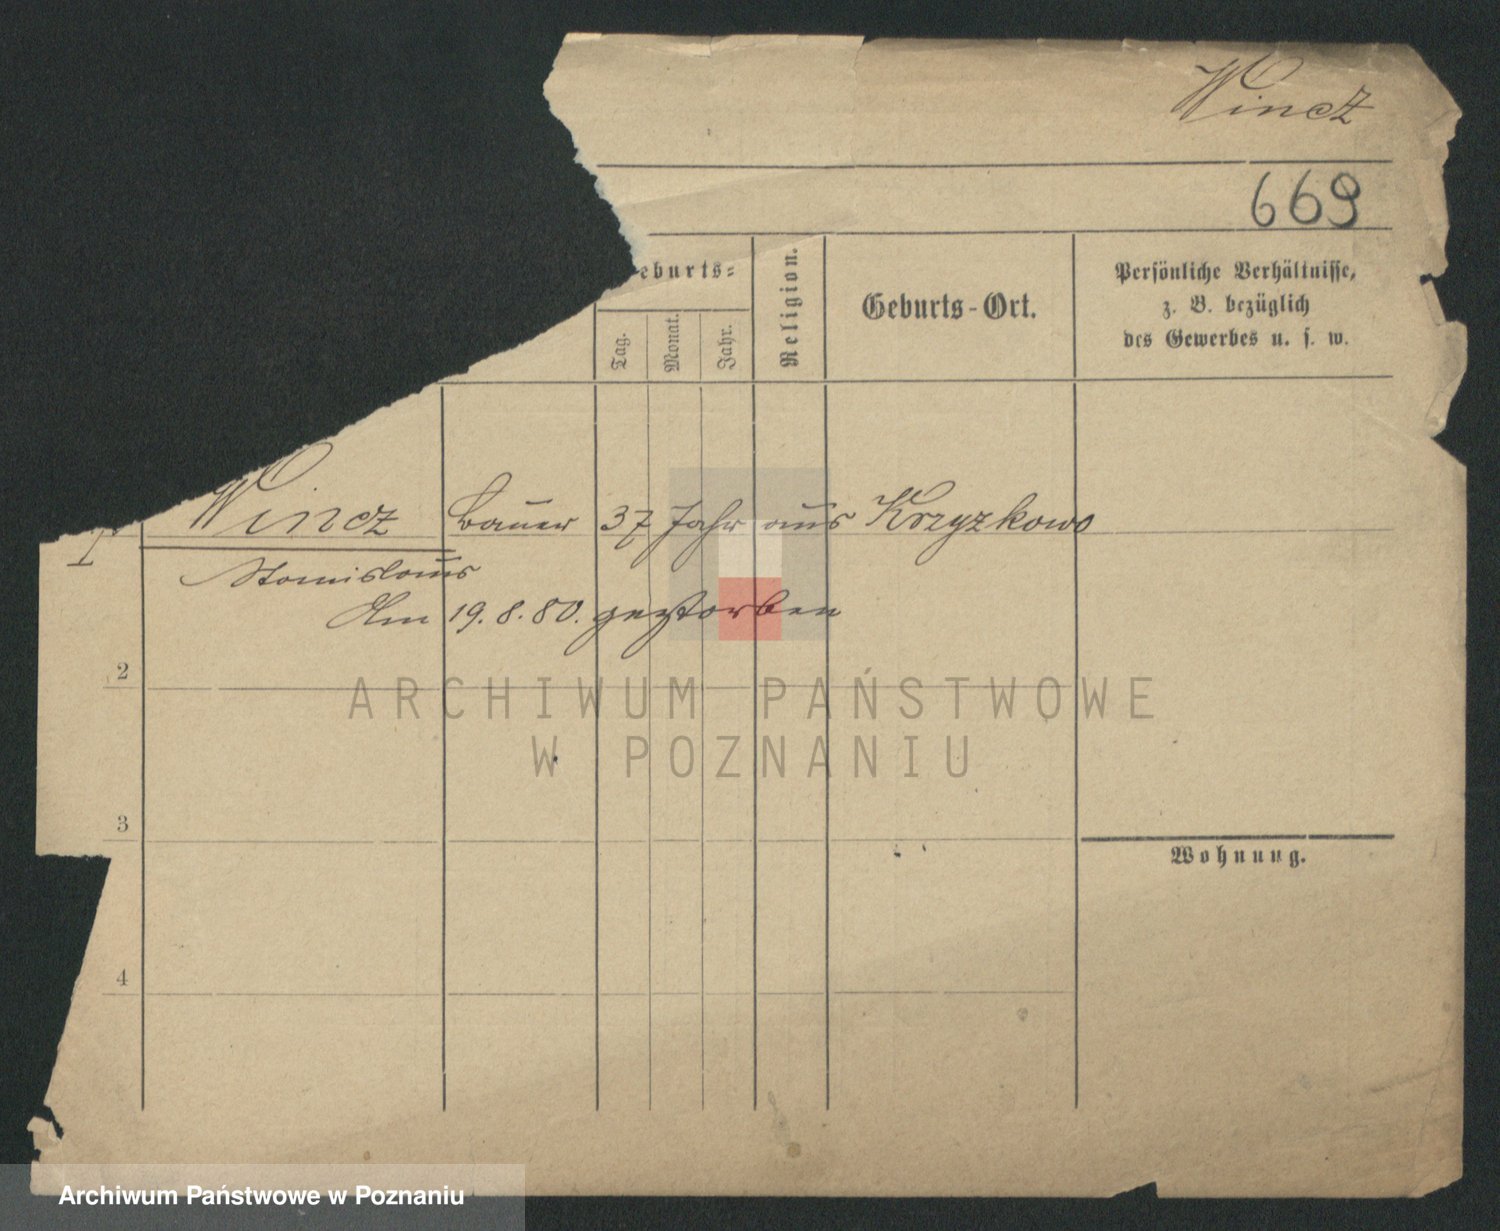 Wincz
669
eburts=
Tag.
Monat.
Jahr.
Religion.
Geburts-Ort.
Persönliche Verhältnisse,
z. B. bezüglich
des Gewerbes u. s. w.
1 Wincz Bauer 37 Jahr aus Krzyzkowo
Stanislaus
Am 19.8.80. gestorben
2
ARCHIWUM PAŃSTWOWE
W POZNANIU
3
Wohnung.
4
Archiwum Państwowe w Poznaniu